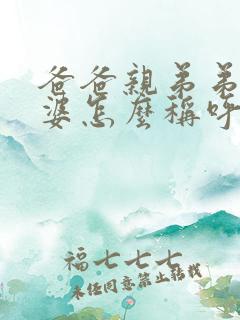 爸爸親弟弟
婆怎麼稱呼
福七七七
未经同意禁止转载